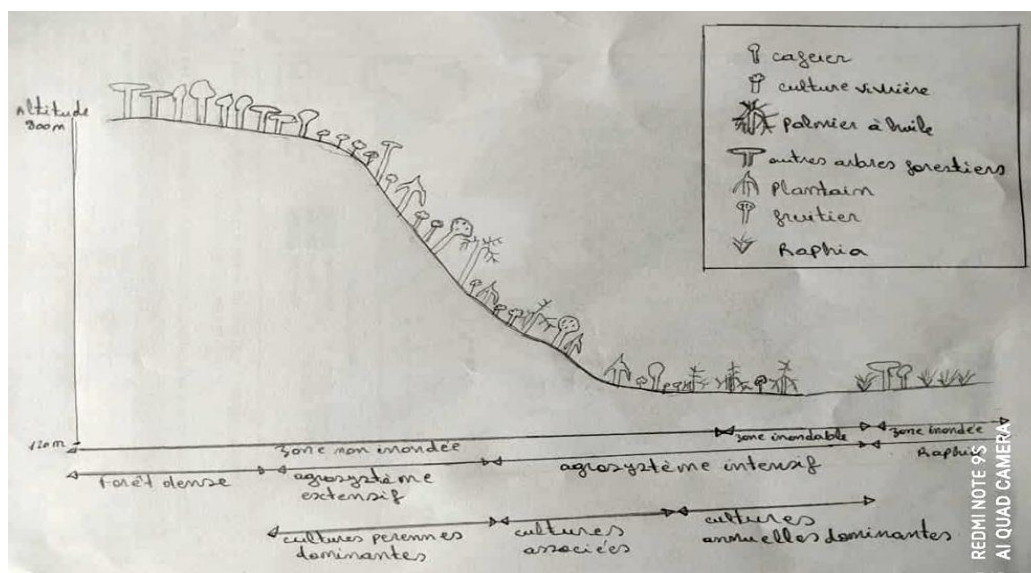 Altitude
800m
cafeier
culture vivrière
Palmier à huile
autres arbres forestiers
Plantain
fruitier
Raphia
120m
zone non inondée
zone inondable
zone inondée
Forêt dense
agrosystème
extensif
agrosystème intensif
Raphia
cultures perennes
dominantes
cultures
associées
cultures
annuelles dominantes
REDMI NOTE 9S
AI QUAD CAMERA